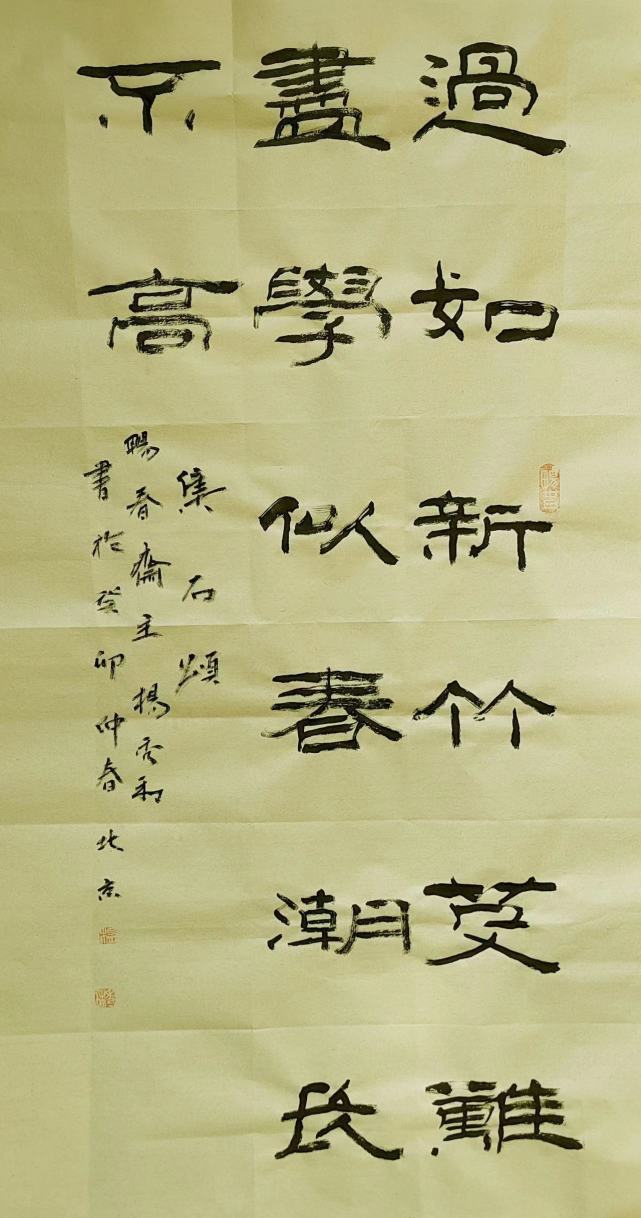 過如新竹芟難
盡學似春潮長
不高
集石頌
暘春齋主楊秀和
書於癸卯仲春北京